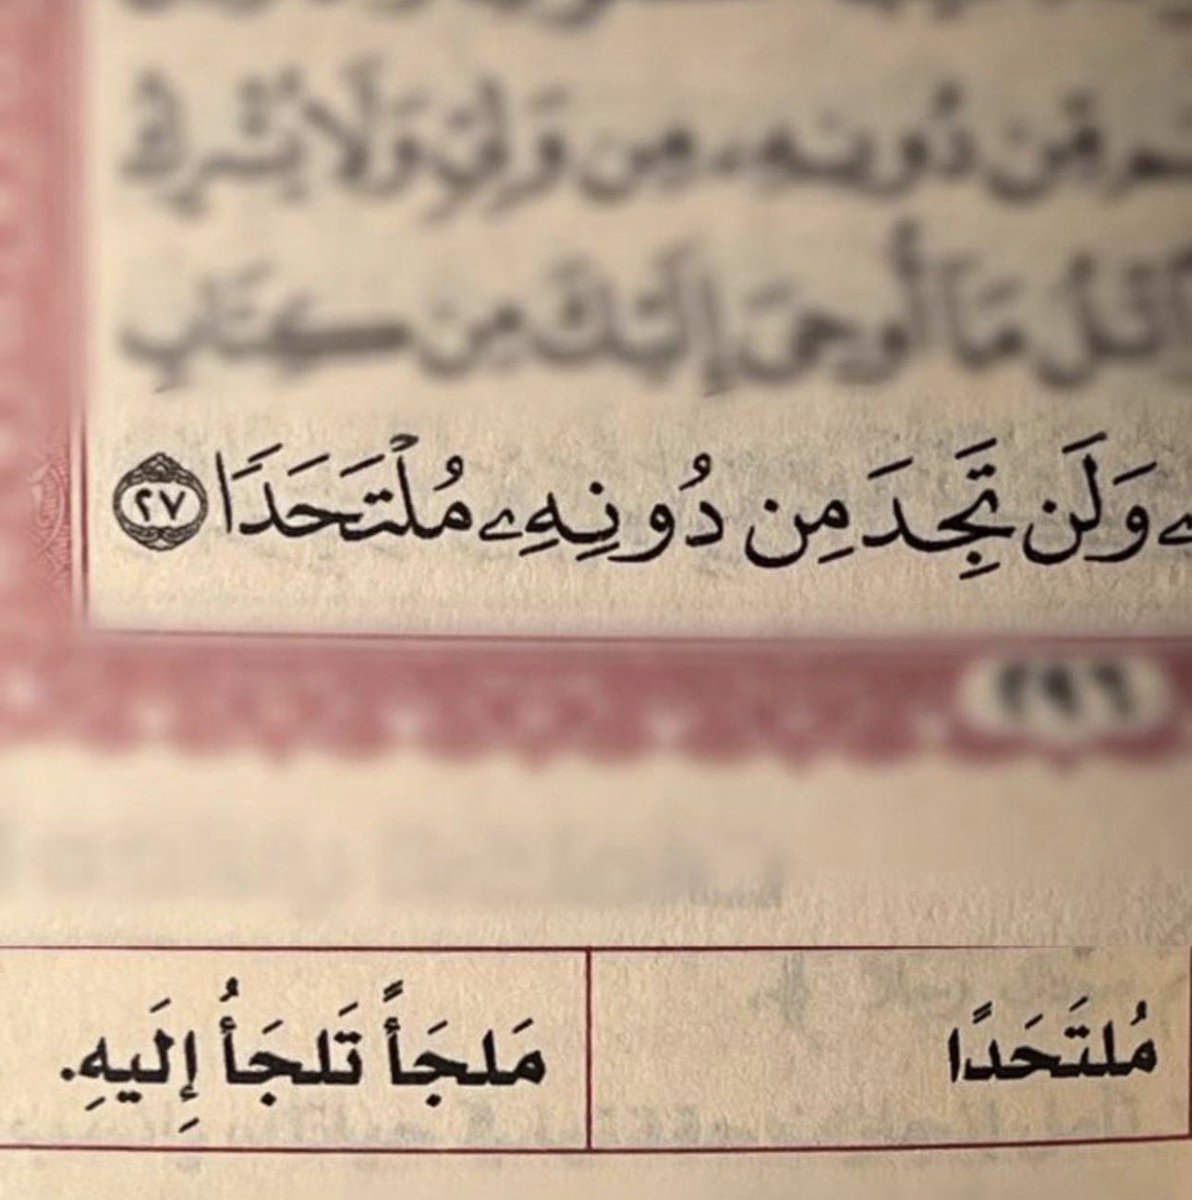 مِّن دُونِهِۦ مِن وَلِيٍّ وَلَا يُشْرِكُ
ٱتْلُ مَآ أُوحِىَ إِلَيْكَ مِن كِتَابِ
وَلَن تَجِدَ مِن دُونِهِۦ مُلْتَحَدًا ٢٧
٢٩٦
مُلتَحَدًا
مَلجَأً تَلجَأُ إِلَيهِ.